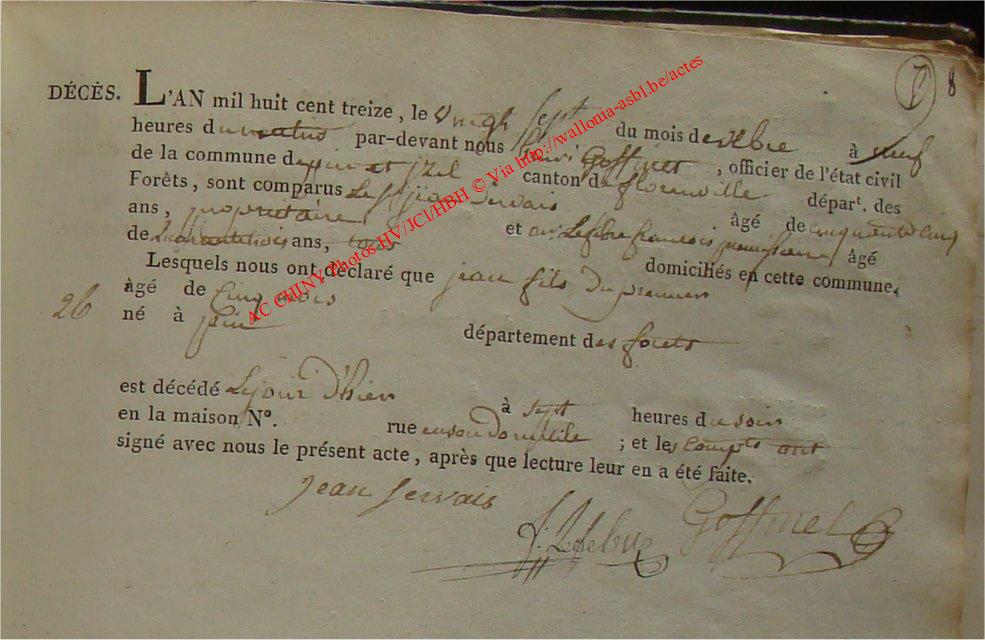 8
DÉCÈS. L'AN mil huit cent treize, le vingt sept du mois de à neuf
heures du matin par-devant nous henri Goffinet, officier de l'état civil
de la commune de pin et jzel canton de florenville départ. des
Forêts, sont comparus Les jean Gervais âgé de cinquante cinq
ans, propriétaire et Lefebre francois âgé
de ans, domiciliés en cette commune,
Lesquels nous ont déclaré que jean fils du premier
26 âgé de Cinq mois
né à pin département des forets
est décédé Le jour d'hier à sept heures du soir
en la maison N°. rue en son domicile ; et les compts ont
signé avec nous le présent acte, après que lecture leur en a été faite.
Jean Gervais
f. Lefebre Goffinet
AC CHINY Photos HV/JCl/HBH © Via http://wallonia-asbl.be/actes